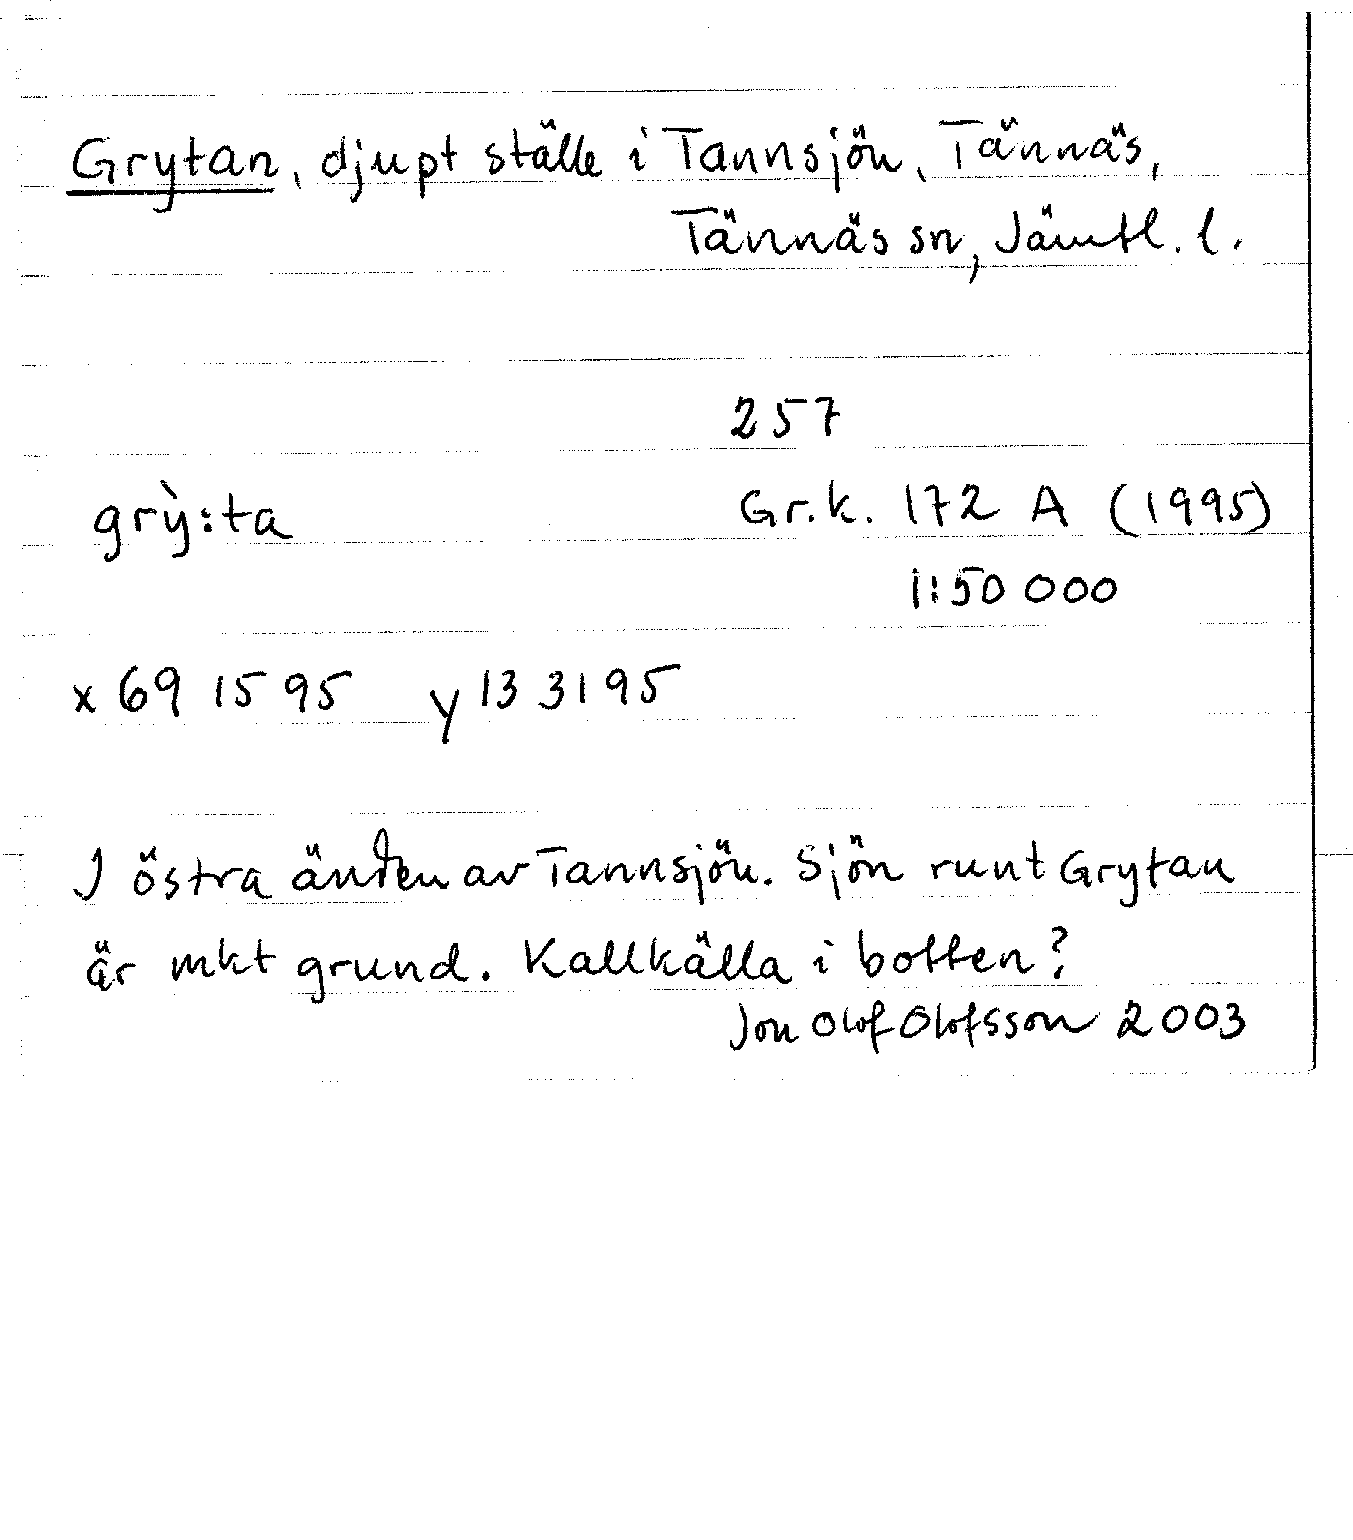 Grytan, djupt ställe i Tannsjön, Tännäs,
Tännäs sn, Jämtl. l.
257
grỳ:ta Gr.k. 172 A (1995)
1:50 000
x 69 15 95 y 13 31 95
I östra änden av Tannsjön. Sjön runt Grytan
är mkt grund. Kallkälla i botten?
Jon Olof Olofsson 2003